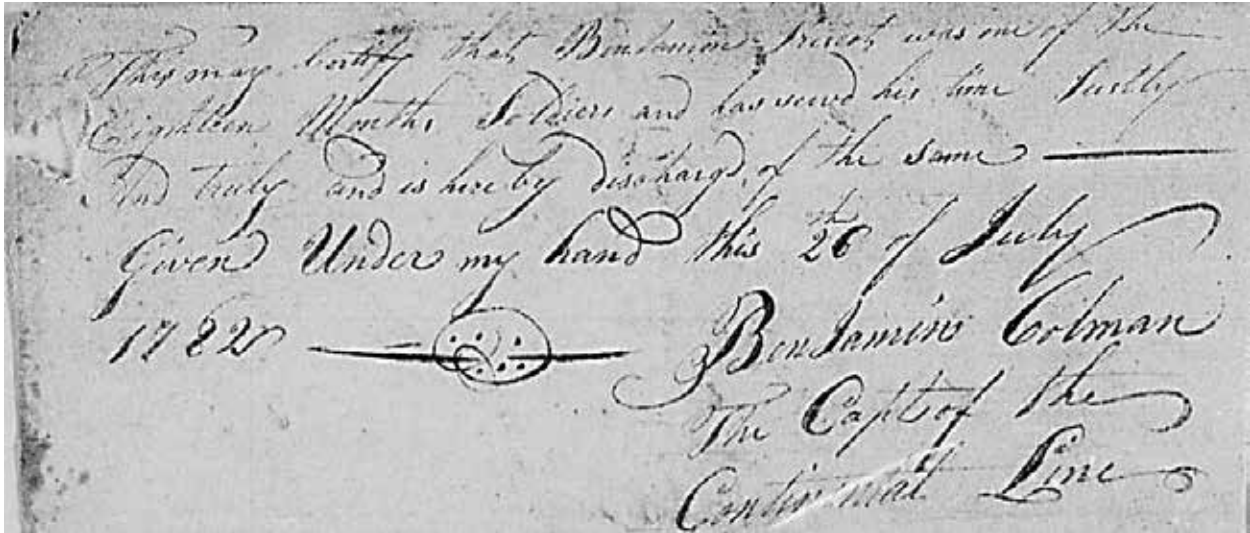 This may Certify that Benjamin was one of the
Eighteen Months Soldiers and has served his time Justly
And truly and is hereby discharg'd of the same
Given Under my hand this 26th of July
1782
Benjamin Colman
The Capt of the
Continental Line